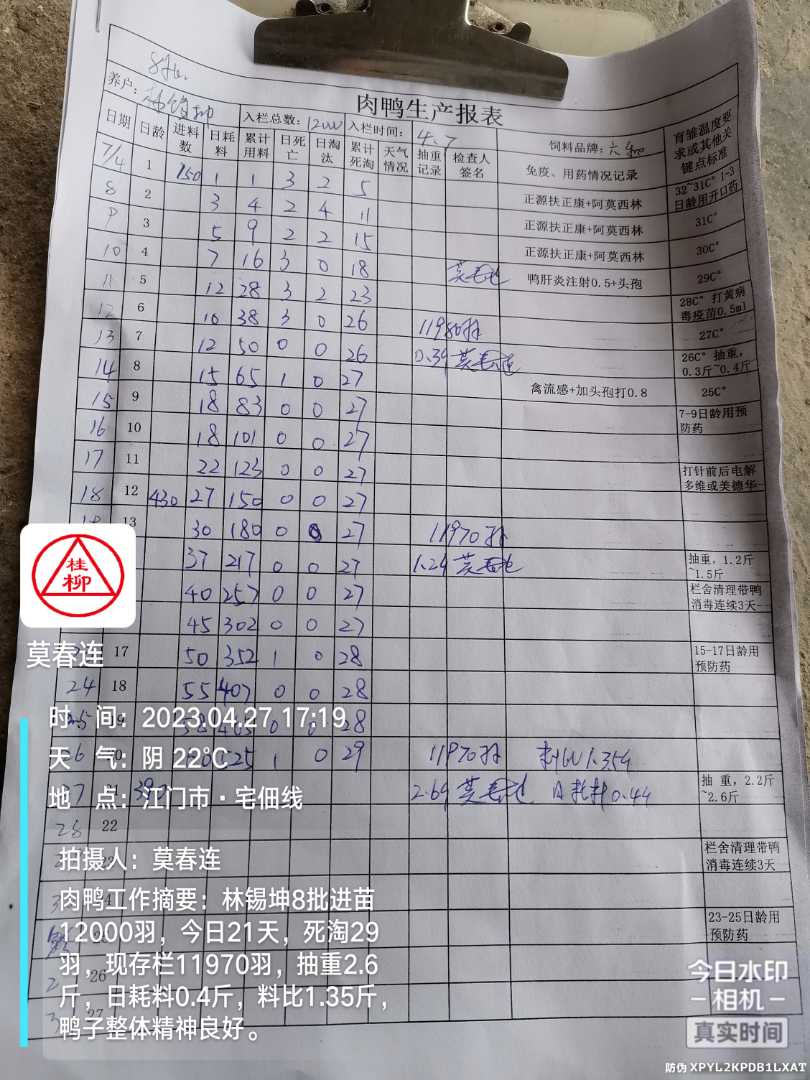 8批
肉鸭生产报表
养户: 入栏总数: 12000 入栏时间: 4.7 饲料品牌: 六和 育雏温度要求或其他关键点标准
日期 日龄 进料数 日耗料 累计用料 日死亡 日淘汰 累计死淘 天气情况 抽重记录 检查人签名 免疫、用药情况记录
7/4 1 150 1 1 3 2 5 32~31C° 1-3日龄用开口药
8 2 3 4 2 4 11 正源扶正康+阿莫西林 31C°
9 3 5 9 2 2 15 正源扶正康+阿莫西林 30C°
10 4 7 16 3 0 18 正源扶正康+阿莫西林 29C°
11 5 12 28 3 2 23 莫春连 鸭肝炎注射0.5+头孢 28C° 打黄病毒疫苗0.5ml
12 6 10 38 3 0 26 27C°
13 7 12 50 0 0 26 11980羽 26C° 抽重,0.3斤~0.4斤
14 8 15 65 1 0 27 0.39 莫春连 禽流感+加头孢打0.8 25C°
15 9 18 83 0 0 27 7-9日龄用预防药
16 10 18 101 0 0 27
17 11 22 123 0 0 27 打针前后电解多维或美德华
18 12 430 27 150 0 0 27
13 30 180 0 0 27 11970羽
37 217 0 0 27 1.24 莫春连 抽重,1.2斤~1.5斤
40 257 0 0 27 栏舍清理带鸭消毒连续3天
45 302 0 0 27
17 50 352 1 0 28 15-17日龄用预防药
24 18 55 407 0 0 28
25 19 58 465 0 0 28
6 20 525 1 0 29 11970羽 料比1.354
7 390 2.64 莫春连 日耗料0.44 抽重,2.2斤~2.6斤
28 22
栏舍清理带鸭消毒连续3天
23-25日龄用预防药
26
27
桂柳
莫春连
时 间: 2023.04.27 17:19
天 气: 阴 22℃
地 点: 江门市·宅佃线
拍摄人: 莫春连
肉鸭工作摘要: 林锡坤8批进苗
12000羽,今日21天,死淘29
羽,现存栏11970羽,抽重2.6
斤,日耗料0.4斤,料比1.35斤,
鸭子整体精神良好。
今日水印
相机
真实时间
防伪 XPYL2KPDB1LXAT